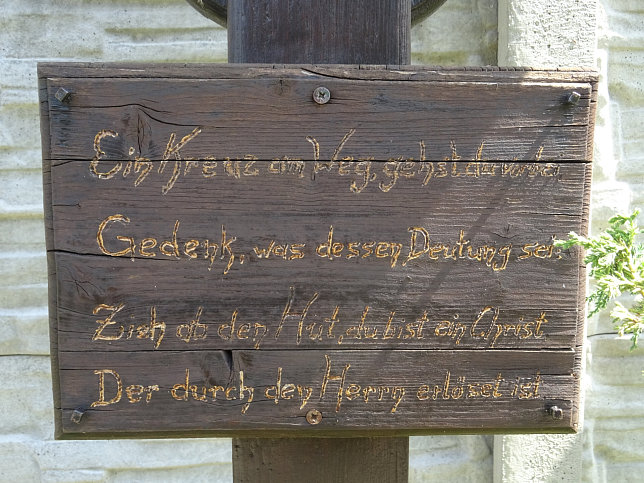 Ein Kreuz am Weg, gehst du vorbei
Gedenk, was dessen Deutung sei.
Zieh ab den Hut, du bist ein Christ
Der durch den Herrn erlöset ist